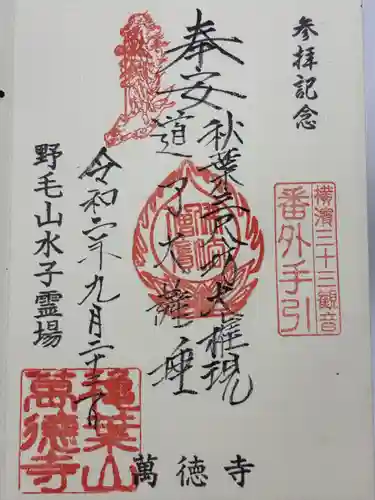 参拝記念
奉安
秋葉三尺坊大権現
道了大薩埵
令和二年九月二十三日
野毛山水子霊場
萬徳寺
横濱三十三観音
番外手引
萬德寺